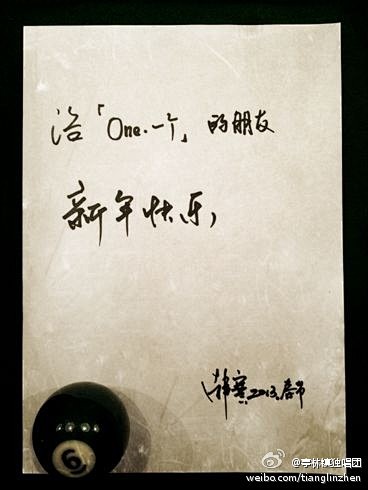 给「One·一个」的朋友
新年快乐，
韩寒2013.春节
6
@亭林镇独唱团
weibo.com/tianglinzhen